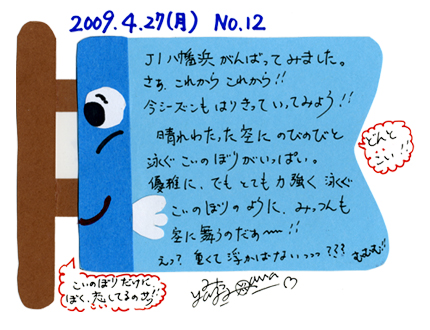 2009.4.27(月) No.12
J1八幡浜がんばってみました。
さぁ、これからこれから!!
今シーズンもはりきっていってみよう!!
晴れわたった空にのびのびと
泳ぐこいのぼりがいっぱい。
優雅に、でもとても力強く泳ぐ
こいのぼりのように、みっつんも
空に舞うのだぁ〜!!
えっ?重くて浮かばないっっっ???
むむむ!!
どんと
こい!!
こいのぼりだけに、
ぼく、恋してるのさっ♡